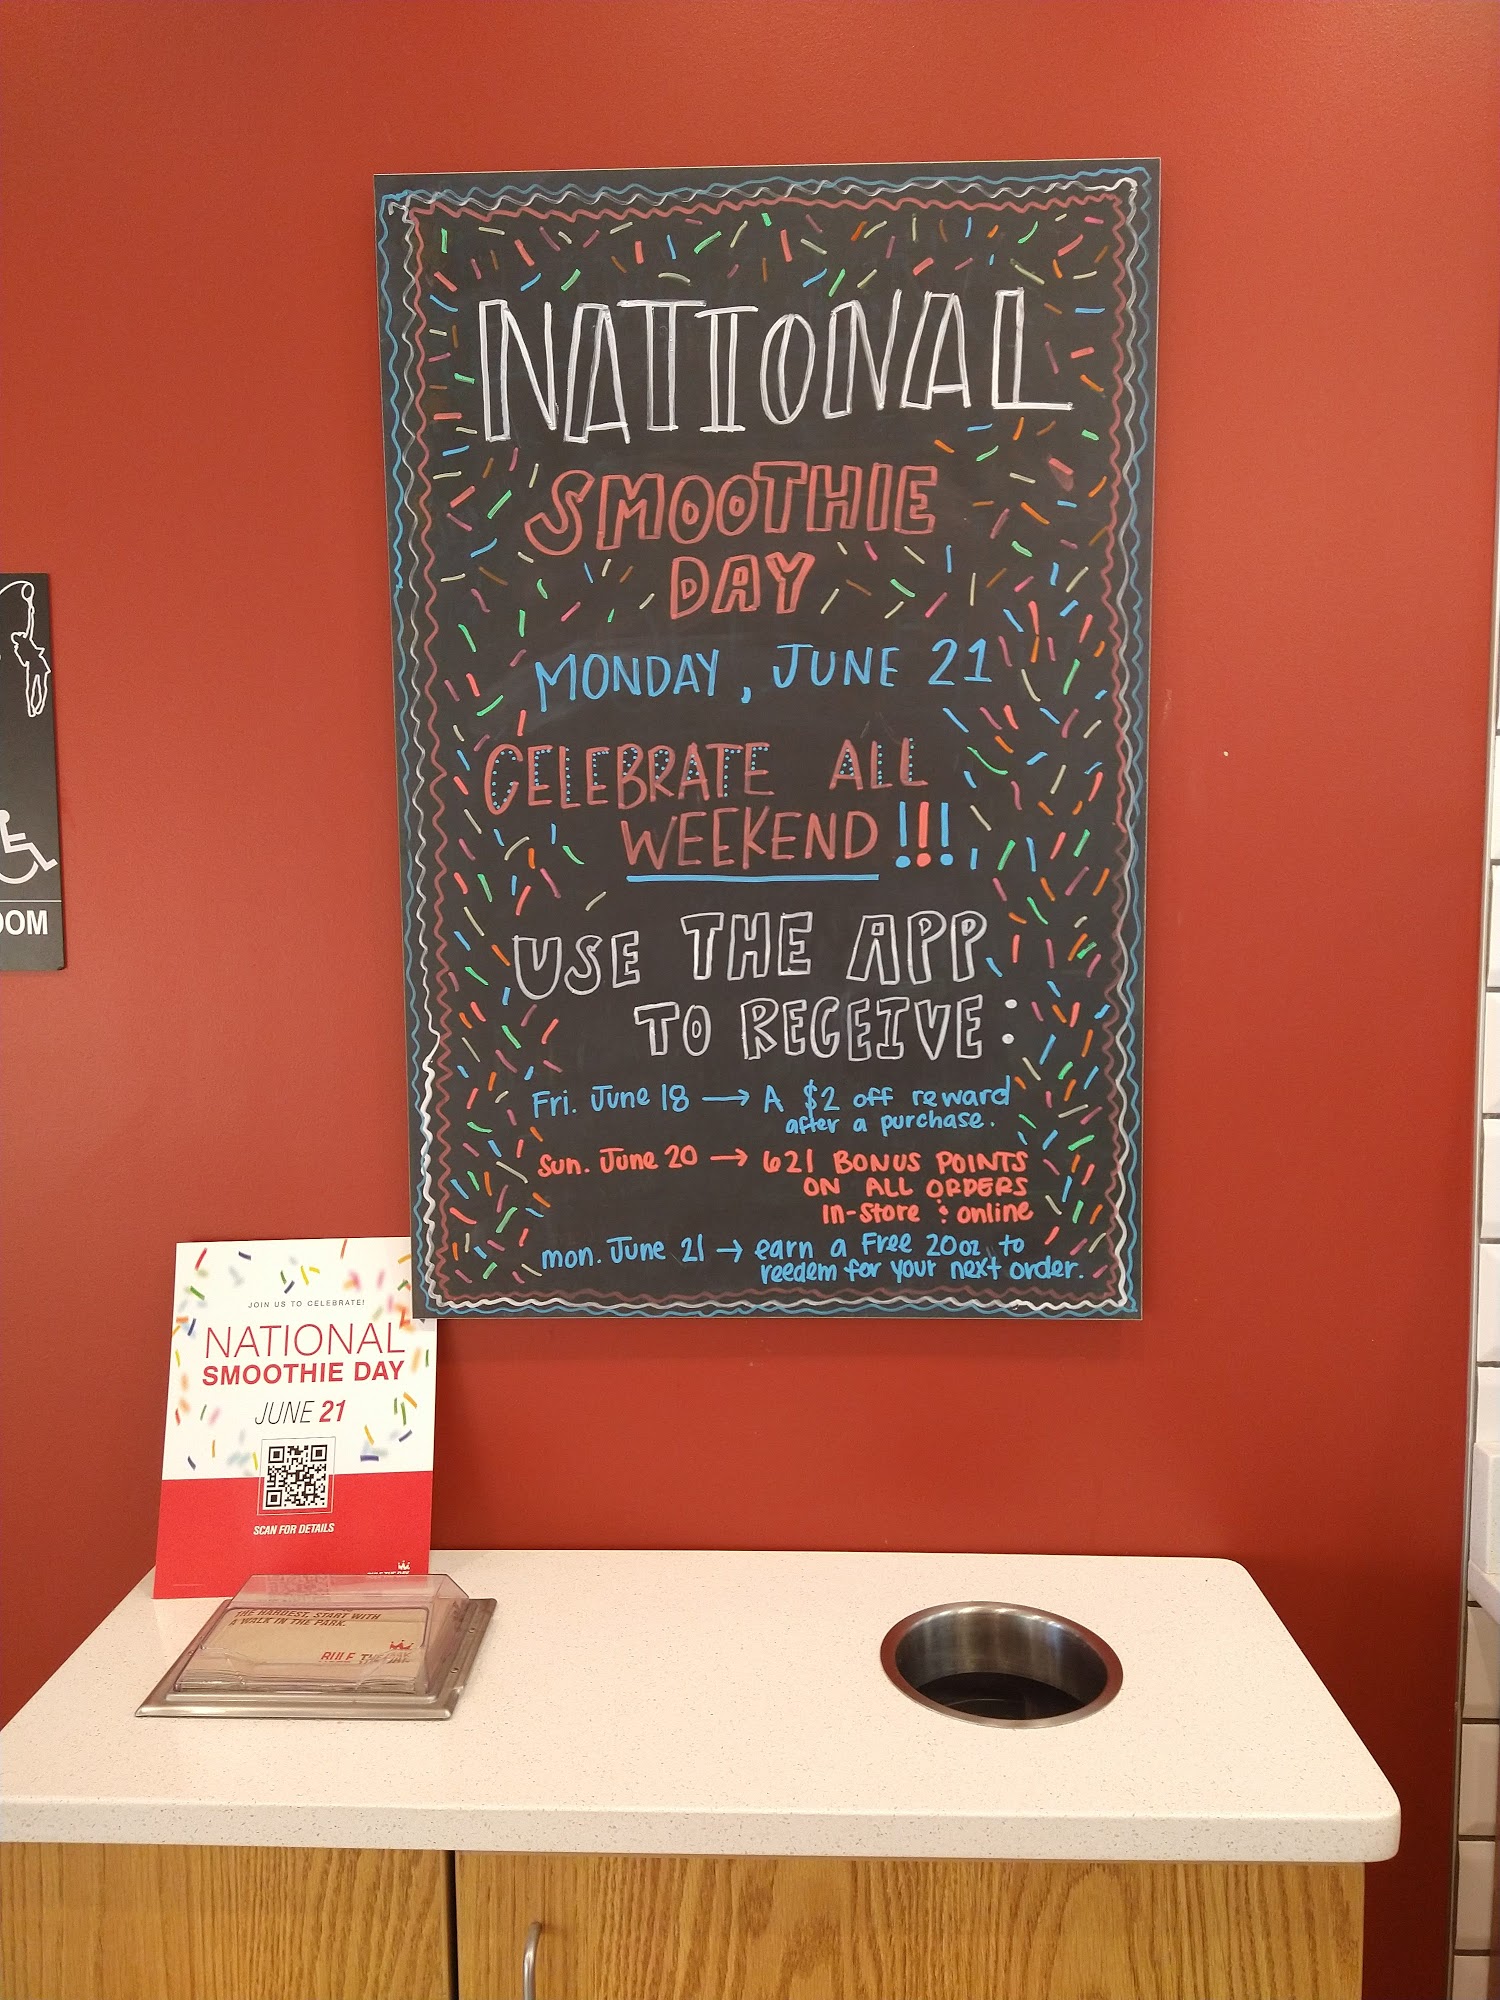 NATIONAL
SMOOTHIE
DAY
MONDAY, JUNE 21
CELEBRATE ALL
WEEKEND!!!
USE THE APP
TO RECEIVE:
Fri. June 18 → A $2 off reward
after a purchase.
Sun. June 20 → 621 BONUS POINTS
ON ALL ORDERS
In-Store & online
mon. June 21 → earn a Free 20oz to
reedem for your next order.
OOM
JOIN US TO CELEBRATE!
NATIONAL
SMOOTHIE DAY
JUNE 21
SCAN FOR DETAILS
RULE THE DAY
THE HARDEST, START WITH
A WALK IN THE PARK.
RULE THE DAY